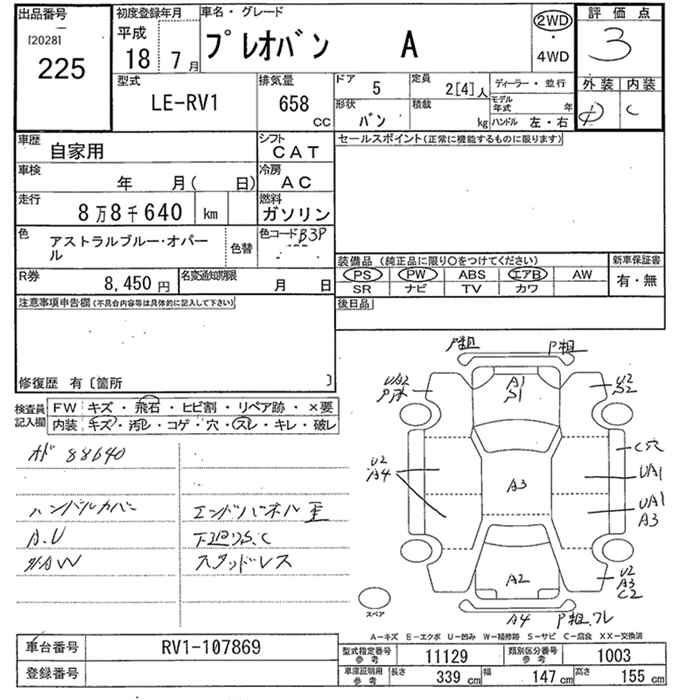 出品番号
[2028]
225
初度登録年月
平成
18 7月
車名・グレード
プレオバン A
2WD
・
4WD
評価点
3
外装 内装
D C
型式
LE-RV1
排気量
658
CC
ドア 5
定員 2[4]人
ディーラー・並行
形状 バン
積載 kg
モデル年式 年
ハンドル 左・右
車歴
自家用
シフト
CAT
車検
年 月( 日)
冷房
AC
走行
8万8千640 km
燃料
ガソリン
色
アストラルブルー・オパール
色替
色コード B3P
R券
8,450 円
名変通知期限
月 日
セールスポイント(正常に機能するものに限ります)
装備品 (純正品に限り○をつけてください)
新車保証書
PS PW ABS エアB AW
有・無
SR ナビ TV カワ
後日品
注意事項申告欄(不具合内容等は具体的に記入して下さい)
修復歴 有〔箇所 〕
検査員記入欄
FW キズ・飛石・ヒビ割・リペア跡・×要
内装 キズ・汚レ・コゲ・穴・スレ・キレ・破レ
オド 88640
ハンドルカバー
A.U
エンドパネル歪
下廻りS.C
スタッドレス
P組
P組
A1
S1
U2
S2
U2
A4
A3
C穴
UA1
UA1
A3
A2
U2
A3
C2
A4
P組.フレ
スペア
A−キズ E−エクボ U−凹み W−補修跡 S−サビ C−腐食 XX−交換済
車台番号
RV1-107869
登録番号
型式指定番号 参考
11129
類別区分番号 参考
1003
車庫証明用 参考
長さ 339 cm
幅 147 cm
高さ 155 cm